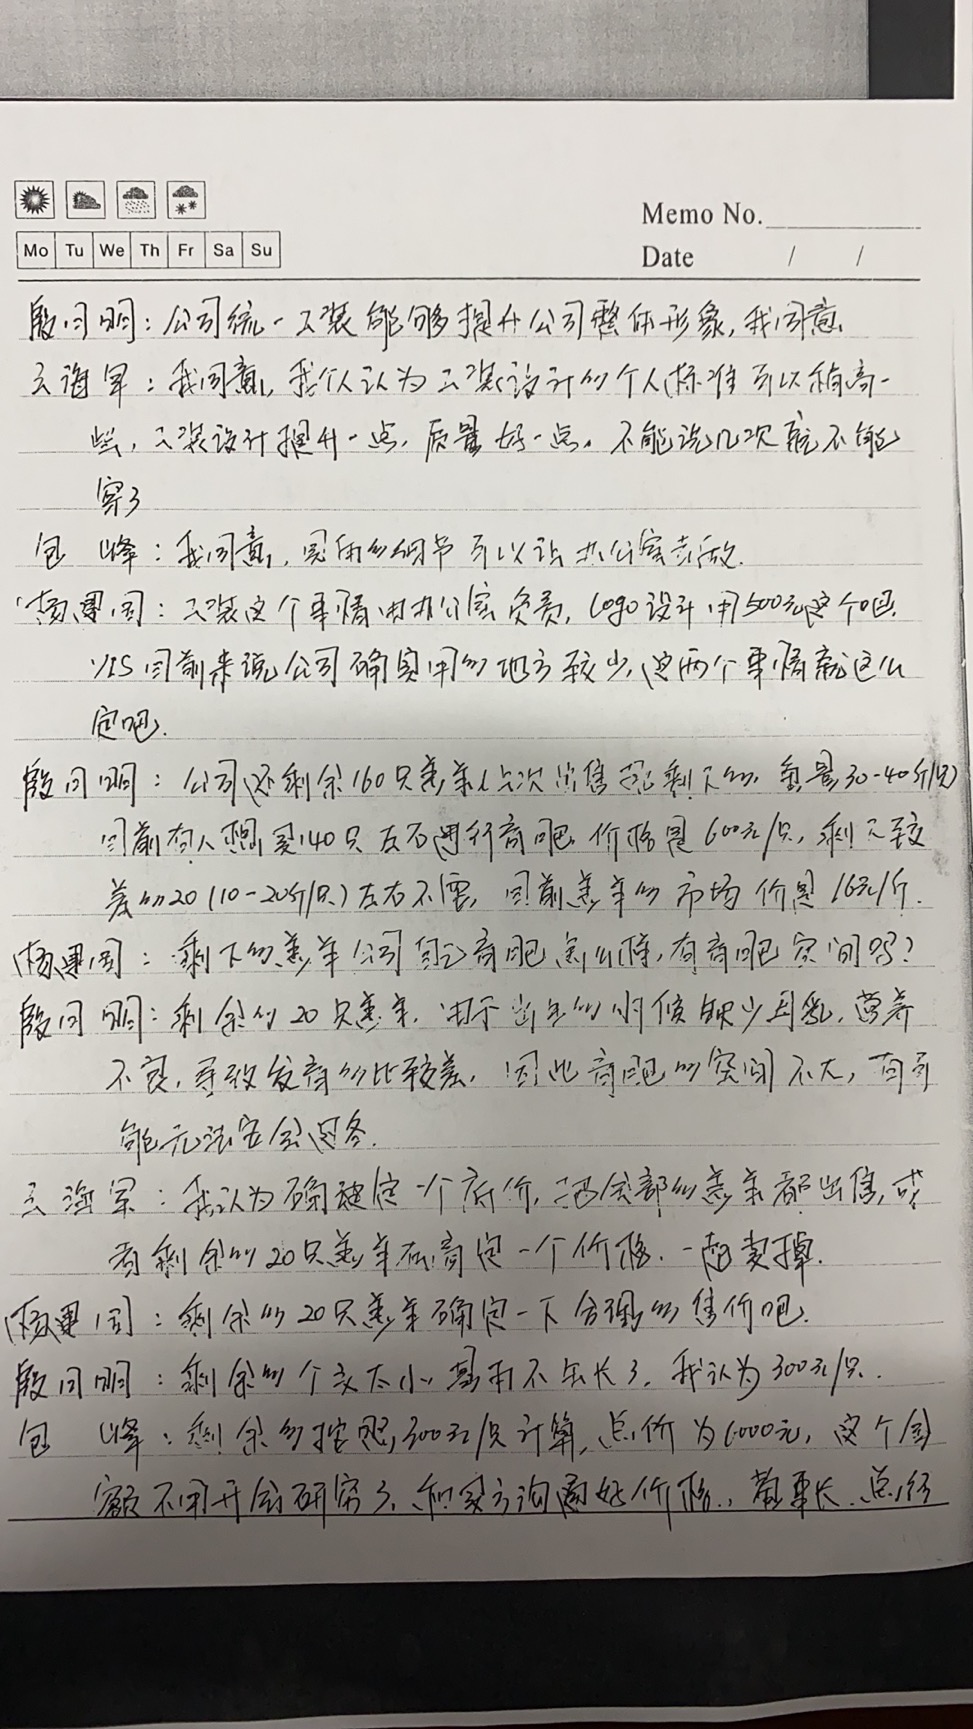 Memo No.
Mo Tu We Th Fr Sa Su
Date / /
殷同明：公司统一工装能够提升公司整体形象，我同意
云海军：我同意，我个人认为工装设计的个人标准可以稍高一
些，工装设计提升一点，质量好一点，不能说几次就不能
穿了
包 峰：我同意，具体的细节可以让办公室去做.
杨恩周：工装这个事情由办公室负责，logo设计用500元这个吧.
VIS目前来说公司确实用的地方较少，这两个事情就这么
定吧.
殷同明：公司还剩余160只羔羊(上次出售 剩下的，重量30-40斤/只)
目前有人想买140只左右进行育肥，价格是600元/只，剩下较
差的20(10-20斤/只)左右不要，目前羔羊的市场价是16元/斤.
杨恩周：剩下的羔羊公司自己育肥怎么样，有育肥空间吗？
殷同明：剩余的20只羔羊，由于出生的时候缺少母乳，营养
不良，导致发育的比较差，因此育肥的空间不大，有可
能无法安全过冬.
云海军：我认为确定一个底价，把全部的羔羊都出售，或
者剩余的20只羔羊在商定一个价格，一起卖掉.
杨恩周：剩余的20只羔羊确定一下合理的售价吧.
殷同明：剩余的个头太小，基本不生长了，我认为300元/只.
包 峰：剩余的按照300元/只计算，总价为6000元，这个金
额不用开会研究了，和买方沟通好价格，董事长、总经